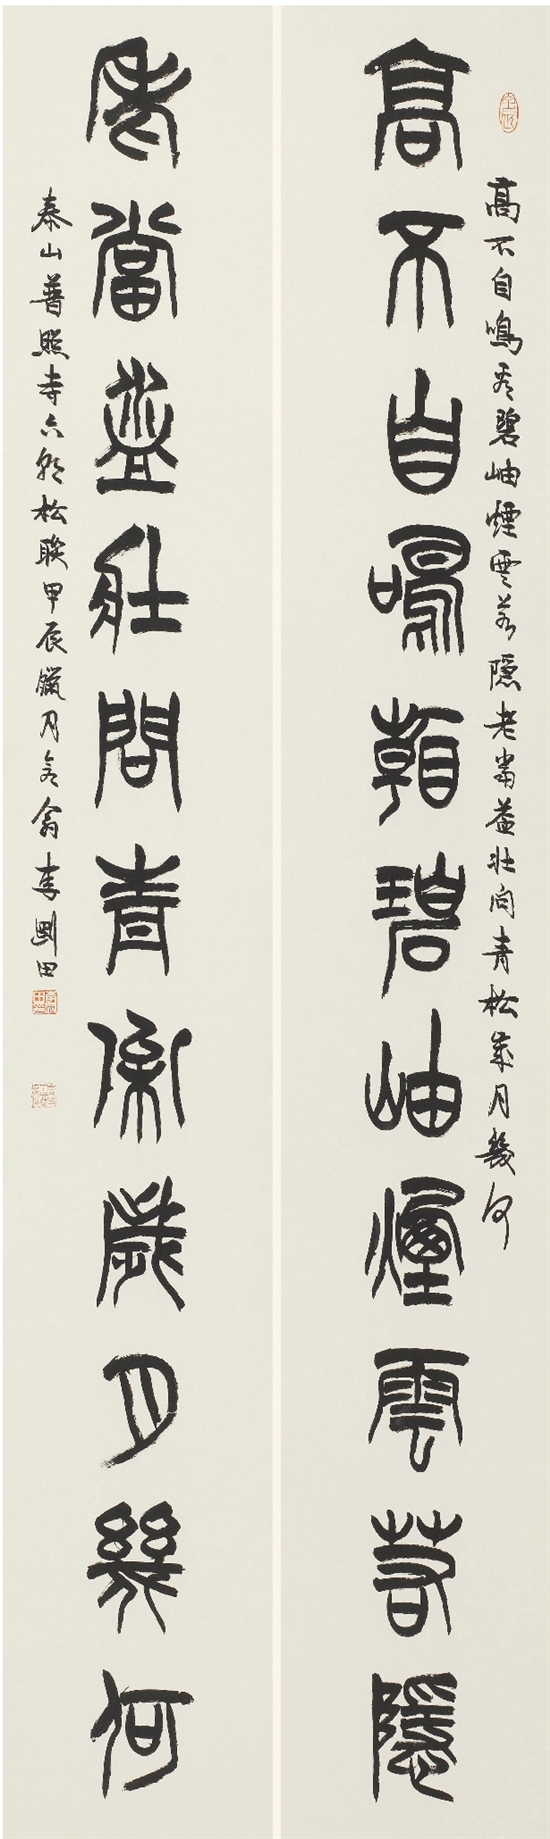 高不自鳴看碧岫煙雲若隱老當益壯問青松歲月幾何
高不自鳴看碧岫煙雲若隱
老當益壯問青松歲月幾何
泰山普照寺六朝松聯甲辰臘月翁李剛田